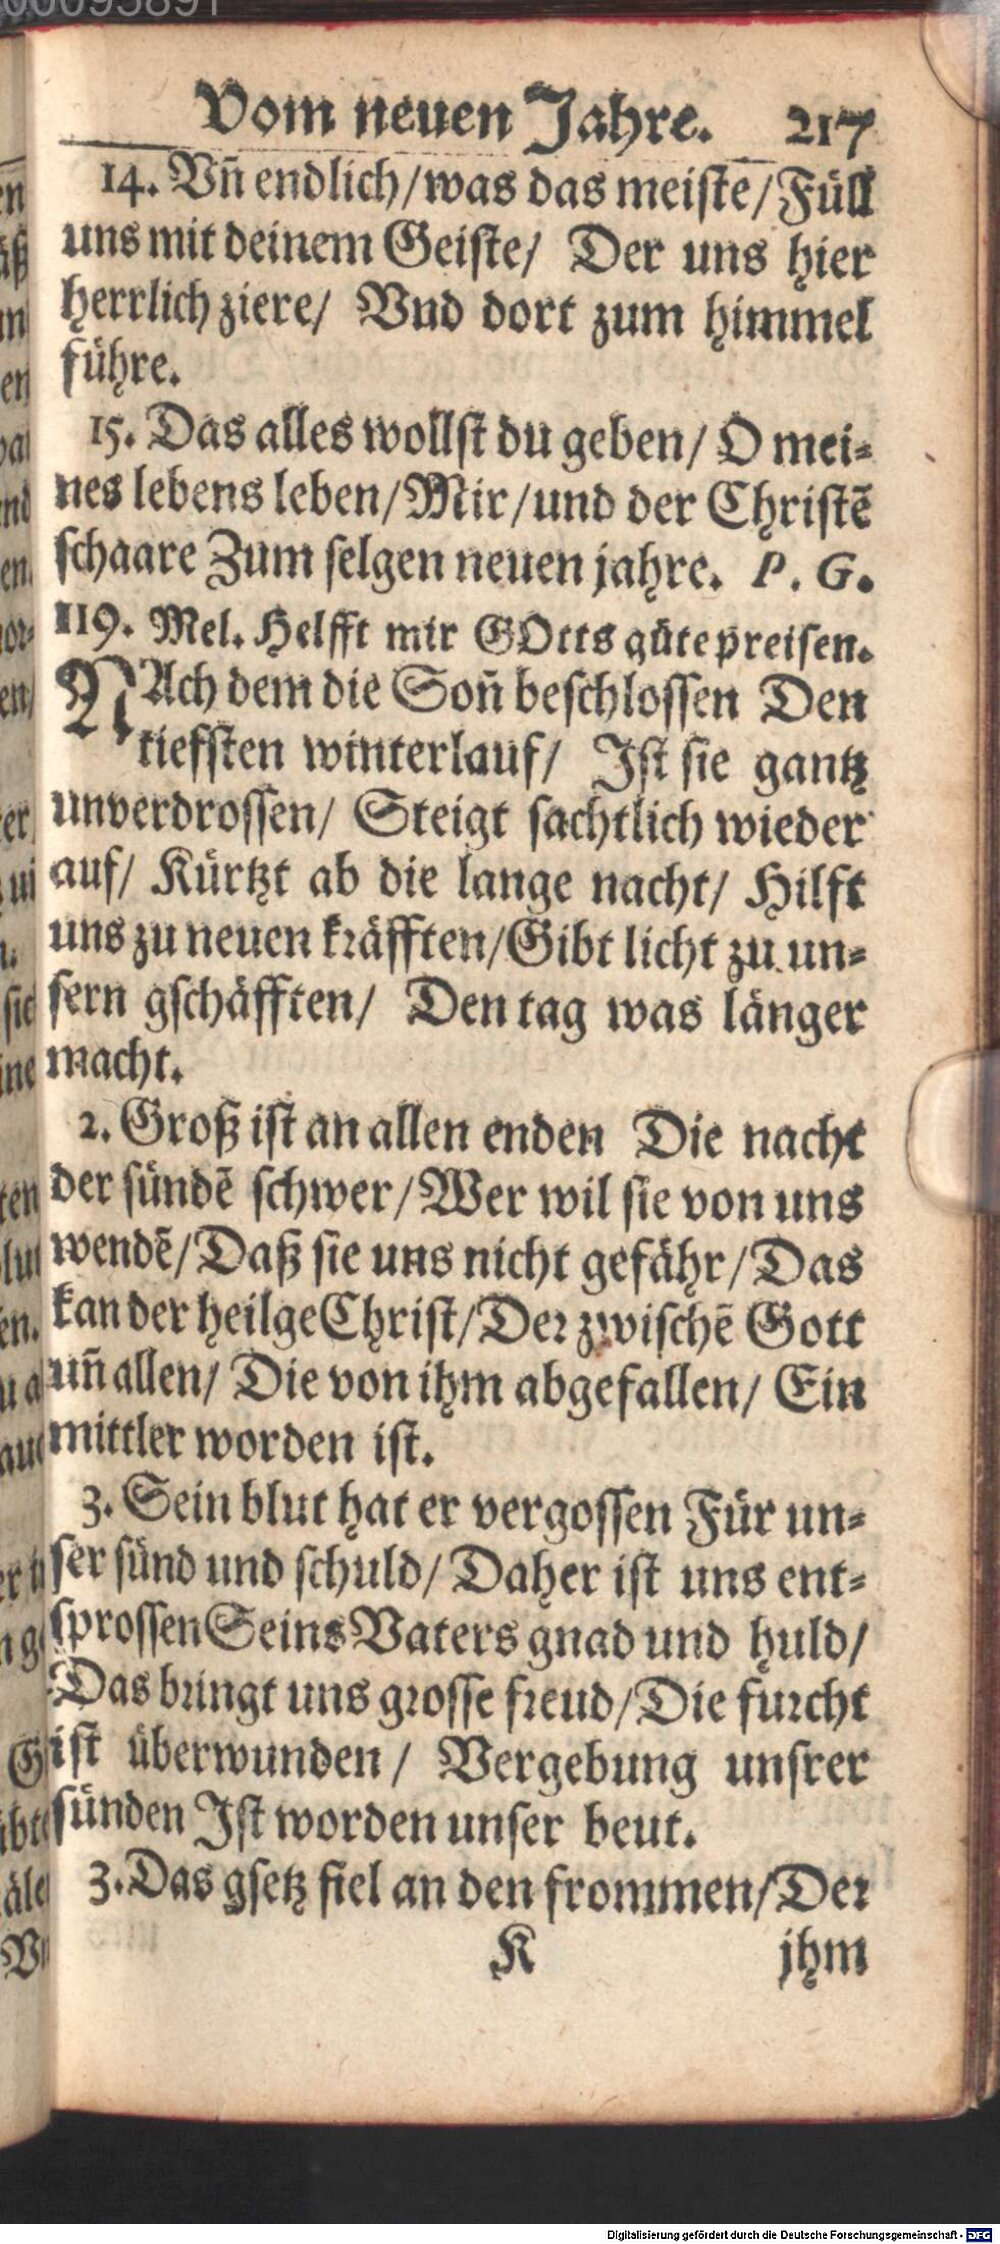 Vom neuen Jahre. 217
14. Vn̄ endlich/was das meiste/Füll
uns mit deinem Geiste/ Der uns hier
herrlich ziere/ Vnd dort zum himmel
führe.
15. Das alles wollst du geben/ O mei-
nes lebens leben/Mir/und der Christē
schaare Zum selgen neuen jahre. P. G.
119. Mel. Helfft mir GOtts güte preisen.
NAch dem die Son̄ beschlossen Den
tiefsten winterlauf/ Ist sie gantz
unverdrossen/ Steigt sachtlich wieder
auf/ Kürtzt ab die lange nacht/ Hilft
uns zu neuen kräfften/Gibt licht zu un-
sern gschäfften/ Den tag was länger
macht.
2. Groß ist an allen enden Die nacht
der sündē schwer/Wer wil sie von uns
wendē/Daß sie uns nicht gefähr/Das
kan der heilge Christ/Der zwischē Gott
un̄ allen/ Die von ihm abgefallen/ Ein
mittler worden ist.
3. Sein blut hat er vergossen Für un-
ser sünd und schuld/ Daher ist uns ent-
sprossen Seins Vaters gnad und huld/
Das bringt uns grosse freud/Die furcht
ist überwunden/ Vergebung unsrer
sünden Ist worden unser beut.
3. Das gsetz fiel an den frommen/Der
K jhm
Digitalisierung gefördert durch die Deutsche Forschungsgemeinschaft - DFG